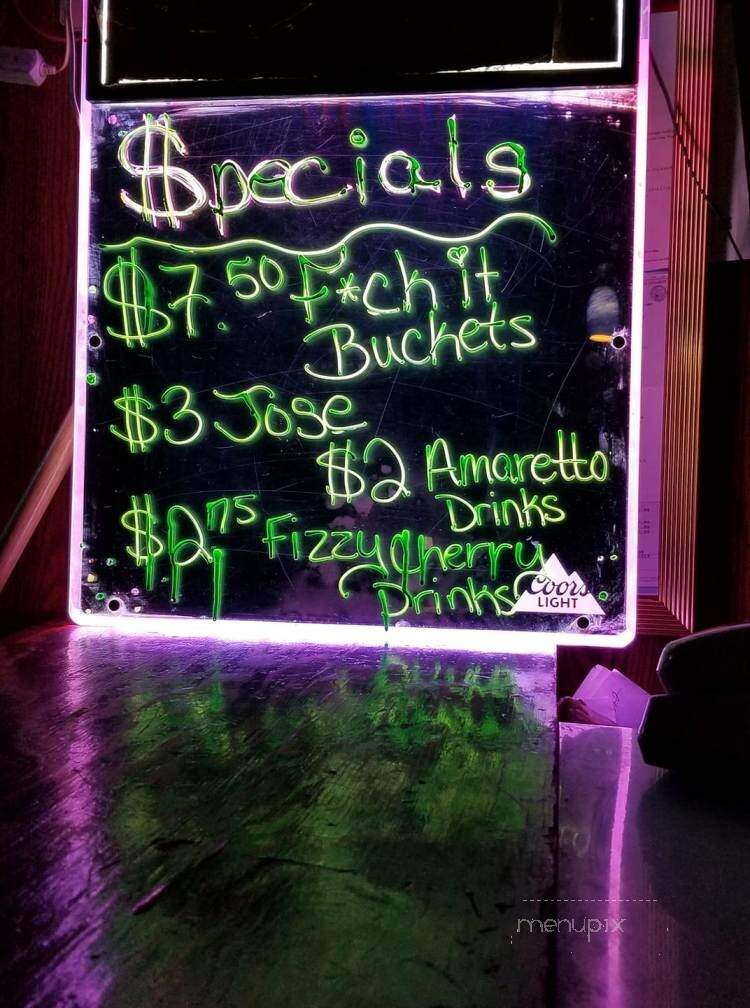 $pecials
$7.50 F*ck it
Buckets
$3 Jose
$2 Amaretto
Drinks
$2.75 Fizzy Cherry
Drinks
Coors
LIGHT
menupix